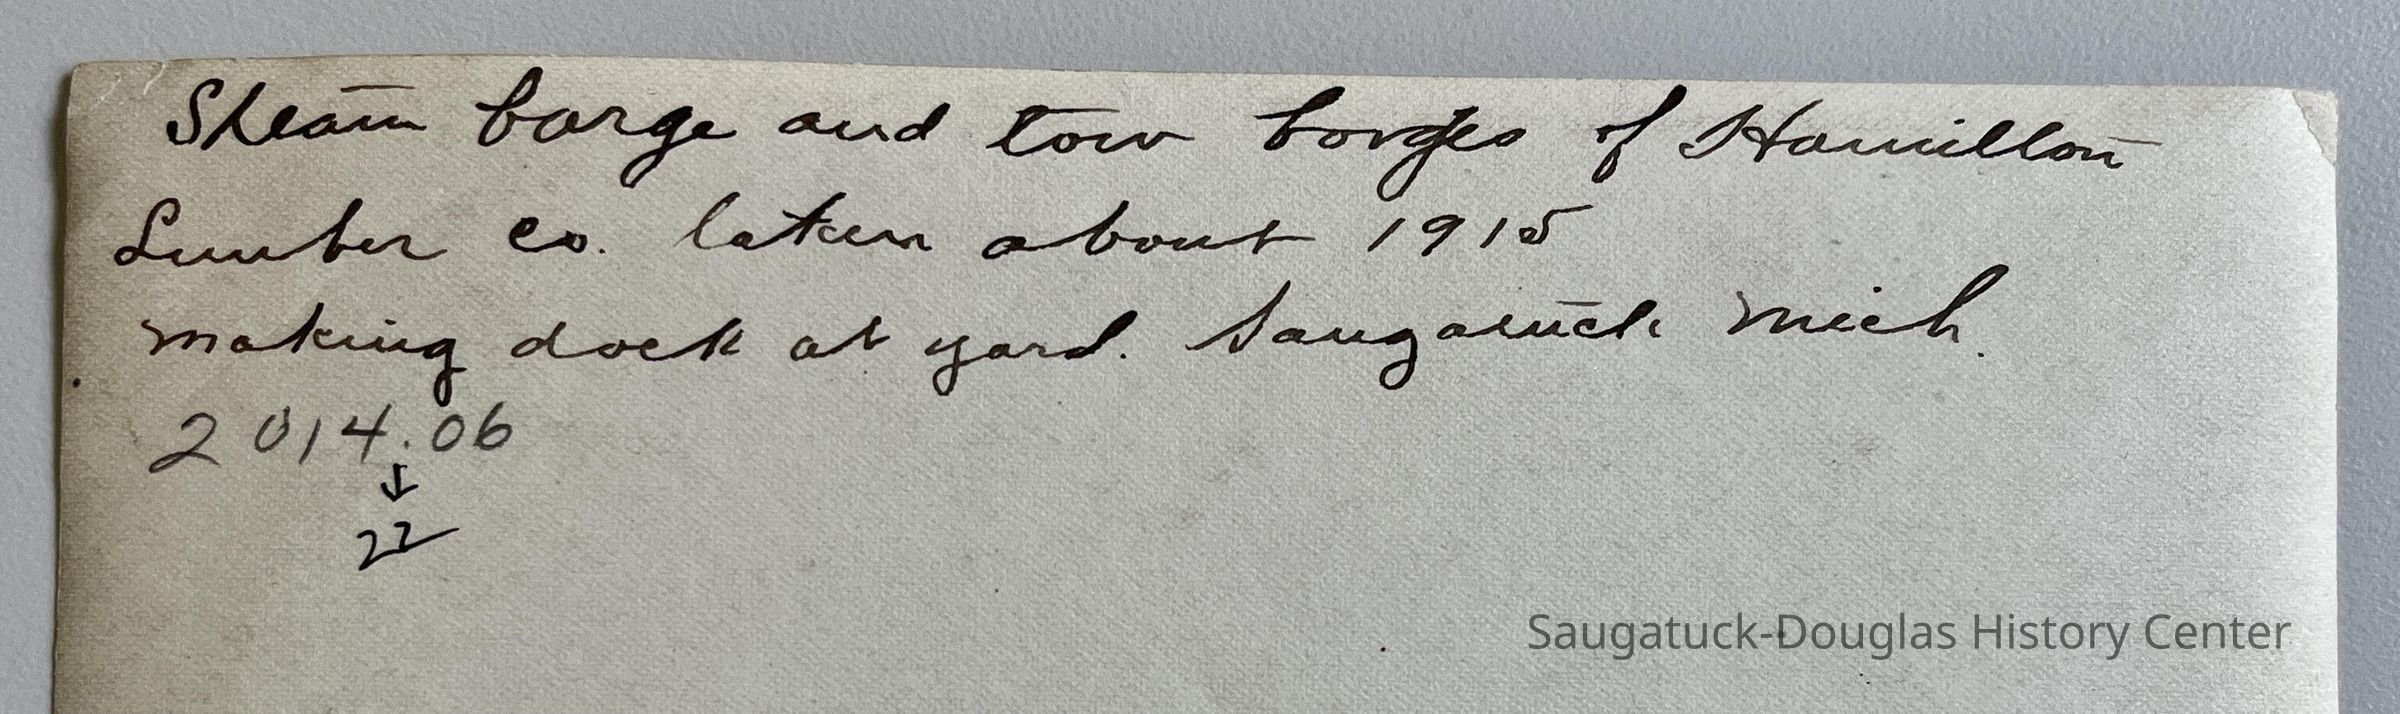 Steam barge and tow barges of Hamilton
Lumber Co. taken about 1915
making dock at yard. Saugatuck Mich.
2014.06
↓
22
Saugatuck-Douglas History Center